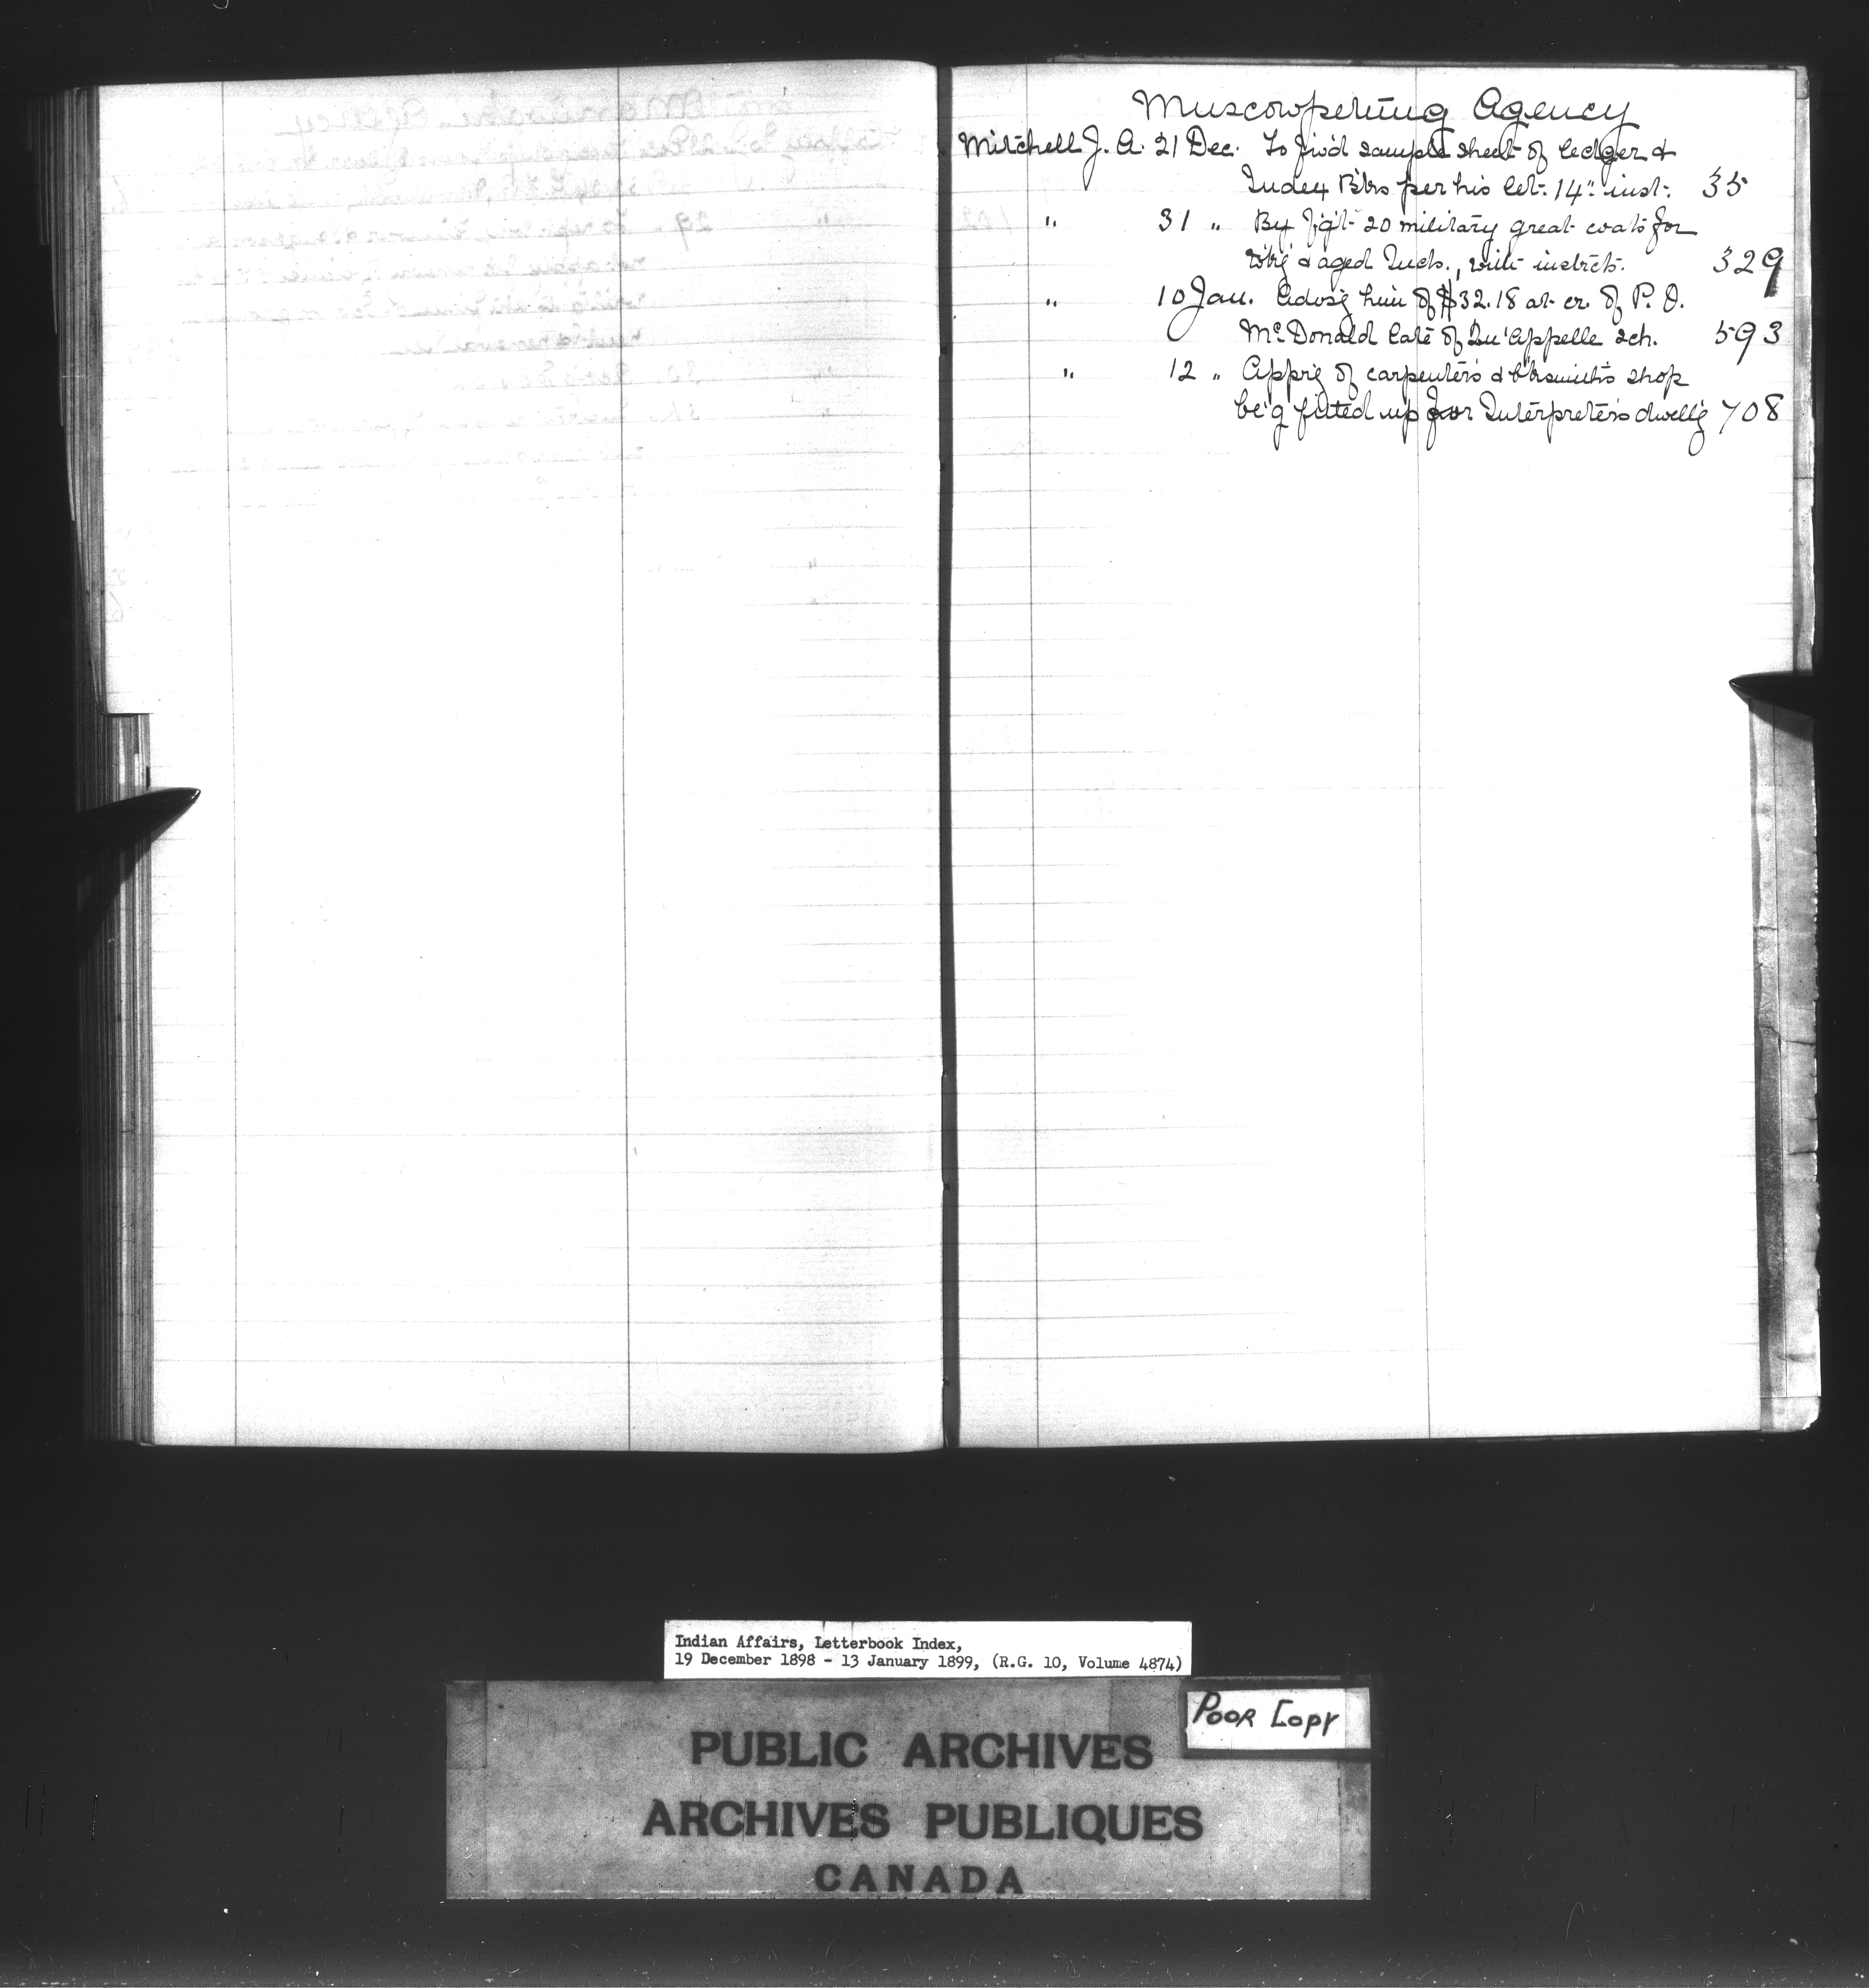 Muscowpetung Agency
Mitchell J. A. 21 Dec. To fw'd sample sheet of ledger &
Index B'ks per his let. 14" inst. 35
" 31 " By f'g't 20 military great coats for
w'k'g & aged Inds., with instrcts. 329
" 10 Jan. Advis'g him of $32.18 at cr. of P. J.
McDonald late of Qu'Appelle sch. 593
" 12 " Apprvg of carpenter's & b'ksmith's shop
be'g fitted up for Interpreter's dwell'g 708
Indian Affairs, Letterbook Index,
19 December 1898 - 13 January 1899, (R.G. 10, Volume 4874)
POOR COPY
PUBLIC ARCHIVES
ARCHIVES PUBLIQUES
CANADA